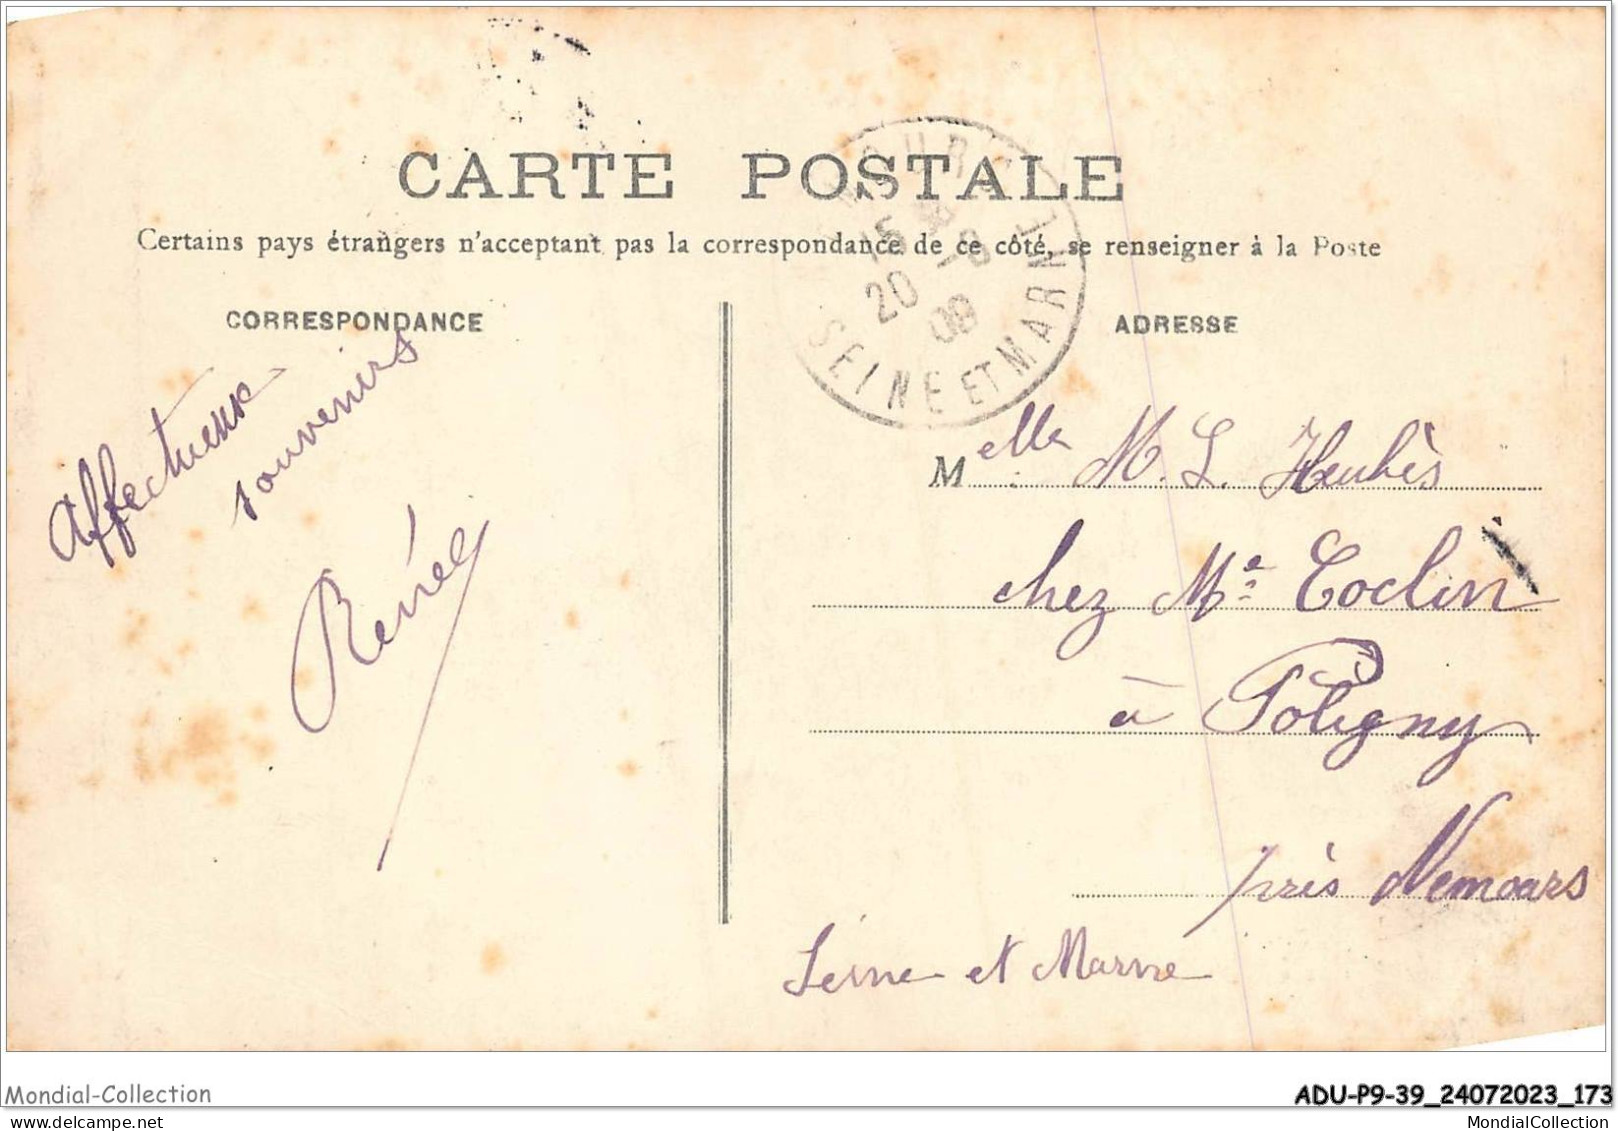 CARTE POSTALE
Certains pays étrangers n'acceptant pas la correspondance de ce côté, se renseigner à la Poste
CORRESPONDANCE
ADRESSE
SEINE ET MARNE
15
20 -8
09
Affectueux
souvenirs
Renée
Melle M. L. Heubès
chez Me Toclin
à Poligny
près Nemours
Seine et Marne
Mondial-Collection
ADU-P9-39_24072023_173
MondialCollection